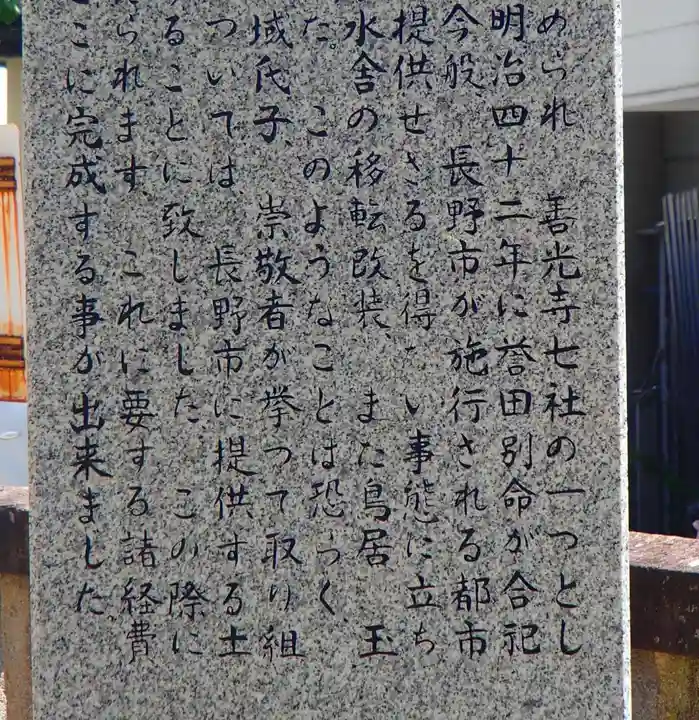 められ 善光寺七社の一つとし
明治四十二年に誉田別命が合祀
今般 長野市が施行される都市
提供せざるを得ない事態に立ち
水舎の移転改装、また鳥居 玉
た。このようなことは恐らく
域氏子、崇敬者が挙って取り組
ついては、長野市に提供する土
ることに致しました この際に
られます。これに要する諸経費
こに完成する事が出来ました。